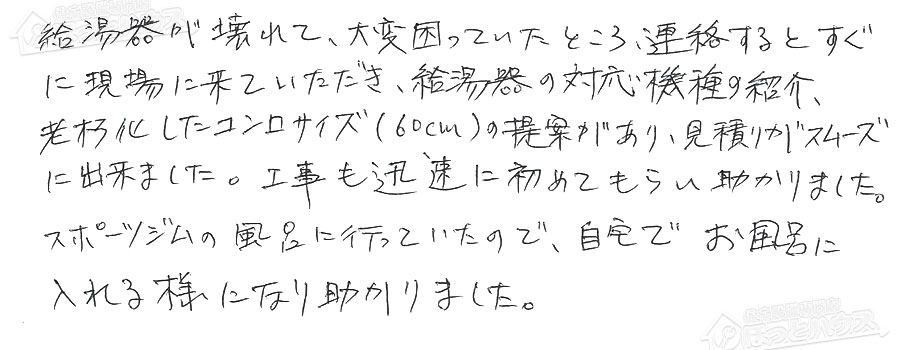 給湯器が壊れて、大変困っていたところ、連絡するとすぐ
に現場に来ていただき、給湯器の対応機種の紹介、
老朽化したコンロサイズ(60cm)の提案があり、見積りがスムーズ
に出来ました。工事も迅速に初めてもらい助かりました。
スポーツジムの風呂に行っていたので、自宅でお風呂に
入れる様になり助かりました。
ほっとハウス